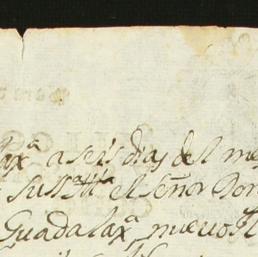 laxª a seis dias del me
Su SSª Illª el señor Don
Guadalaxª nuevo R